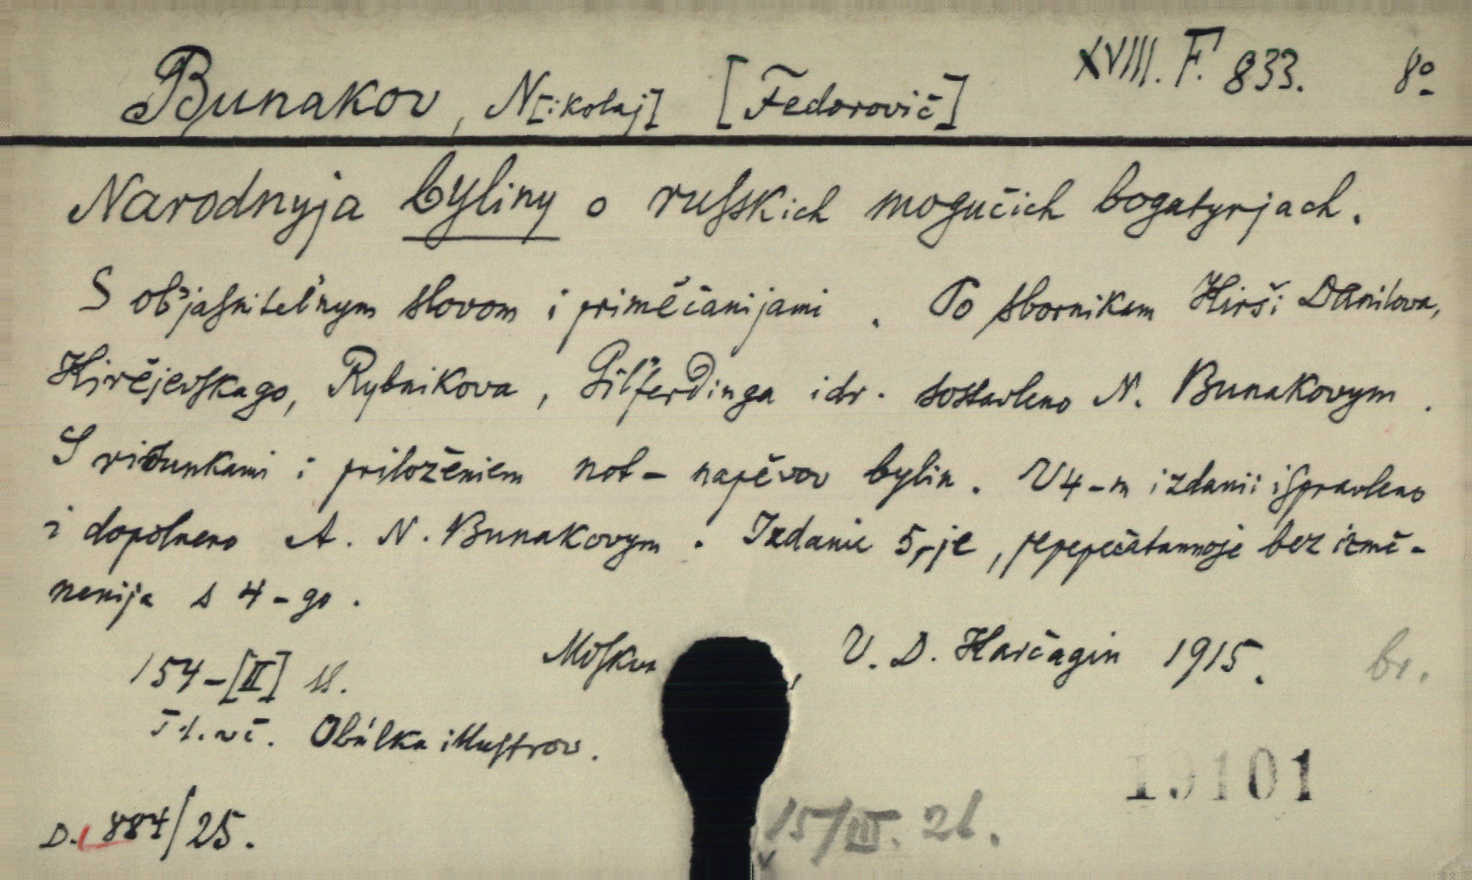 XVIII. F. 833. 8º
Bunakov, N[ikolaj] [Fedorovič]
Narodnyja byliny o russkich mogučich bogatyrjach.
S ob"jasnitel'nym slovom i priměčanijami. Po sbornikam Kirši Danilova,
Kirějevskago, Rybnikova, Gil'ferdinga i dr. sostavleno N. Bunakovym.
S risunkami i priložēniem not- napěvov bylin. V 4-m izdanii ispravleno
i dopolneno A. N. Bunakovym. Izdanie 5-je, perepečatannoje bez izmě-
nenija s 4-go.
Moskva, V. D. Karčagin 1915. br.
154-[II] s.
Obálka illustrov.
19101
D. 884/25. 15/III. 26.